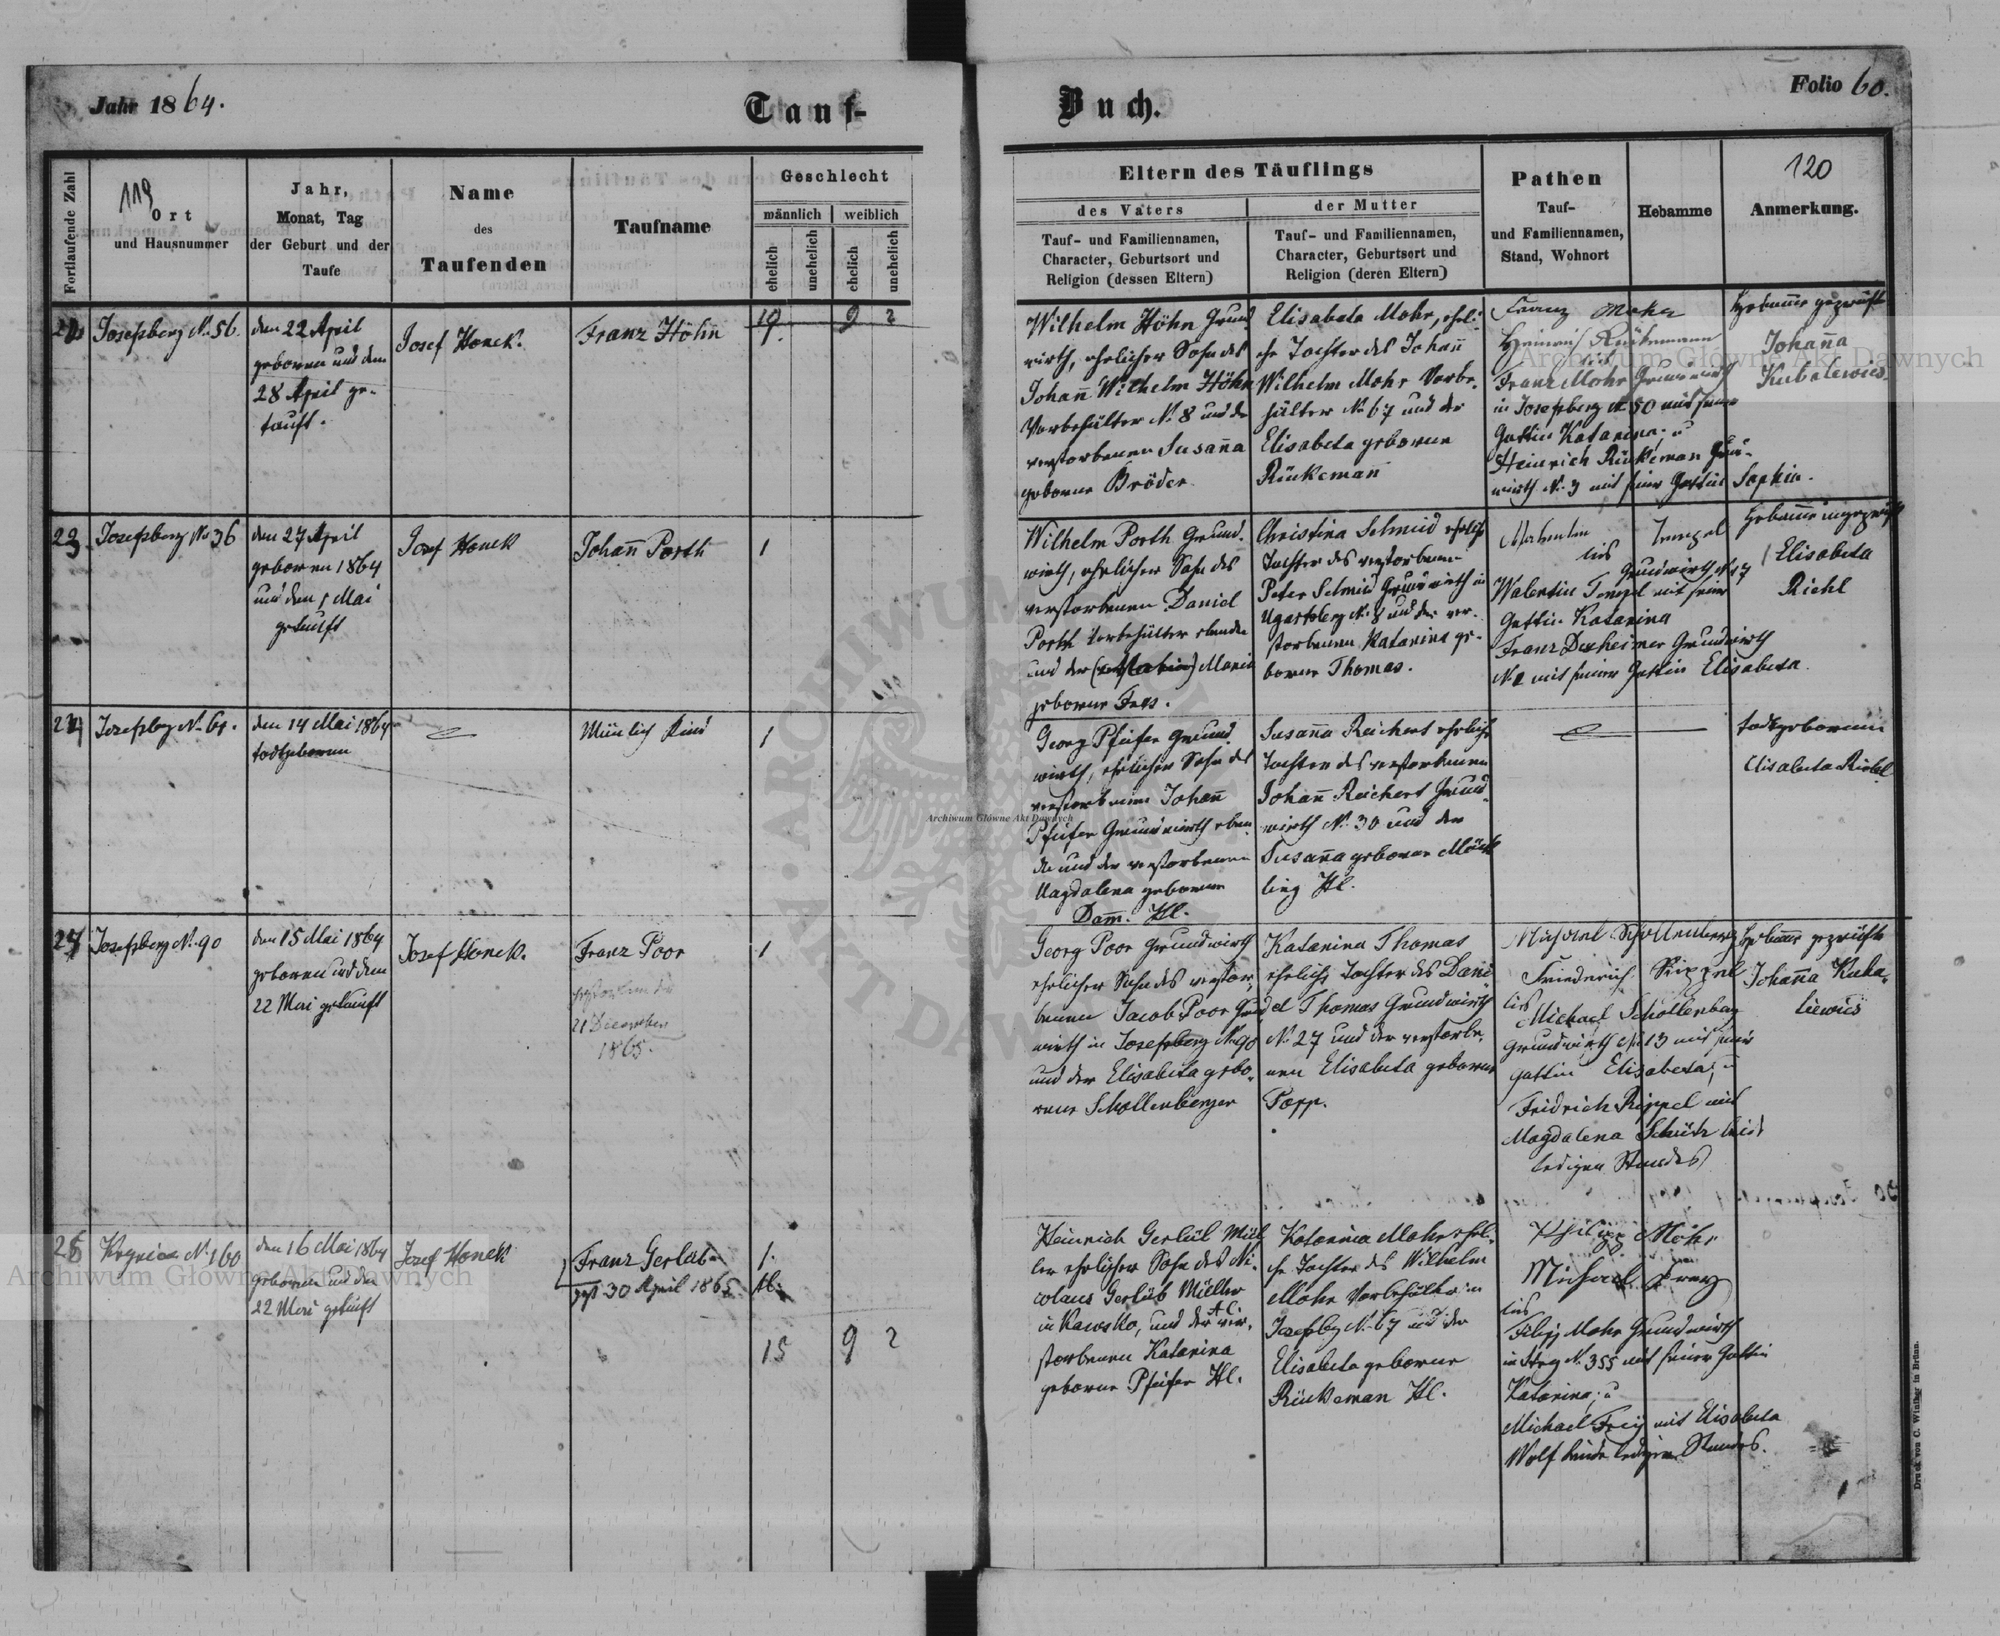 Jahr 1864.
Tauf-
Buch.
Folio 60.
Fortlaufende Zahl
119
Ort
und Hausnummer
Jahr,
Monat, Tag
der Geburt und der
Taufe
Name
des
Taufenden
Taufname
Geschlecht
männlich
weiblich
ehelich
unehelich
ehelich
unehelich
Eltern des Täuflings
des Vaters
Tauf- und Familiennamen,
Character, Geburtsort und
Religion (dessen Eltern)
der Mutter
Tauf- und Familiennamen,
Character, Geburtsort und
Religion (deren Eltern)
Pathen
Tauf-
und Familiennamen,
Stand, Wohnort
Hebamme
120
Anmerkung.
Josefsberg N. 56.
den 22 April
geboren und den
28 April ge-
tauft.
Josef Honek.
Franz Höhn
9 2
Wilhelm Höhn Grund
wirth, ehelicher Sohn des
Johann Wilhelm Höhn
Vorbehälter N. 8 und der
verstorbenen Susanna
geborne Bröder
Elisabeta Mohr, eheli-
che Tochter des Johann
Wilhelm Mohr Vorbe-
hälter N. 67 und der
Elisabeta geborene
Rückeman
Franz Mohr
Heinrich Rückemann
Franz Mohr Grundwirth
in Josefsberg N. 50 mit seiner
Gattin Katarina u
Heinrich Rückeman Grund-
wirth N. 3 mit seiner Gattin Sophia.
Hebamme geprüfte
Johanna
Kubalewics.
23
Josefsberg N. 36
den 27 April
geboren 1864
und den 1 Mai
getauft
Josef Honek
Johann Porth
1
Wilhelm Porth Grund-
wirth, ehelicher Sohn des
verstorbenen Daniel
Porth Vorbehälter ebenda
und der Maria
geborne
Christina Schmid ehelich
Tochter des verstorbenen
Peter Schmid Grundwirth in
Ugartsberg N. 8 und der ver-
storbenen Katarina ge-
borne Thomas.
Tempel
Grundwirth N. 17
Walentin Tempel mit seiner
Gattin Katarina
Franz Dexheimer Grundwirth
N. 2 mit seiner Gattin Elisabeta.
Hebamme ungeprüft
Elisabeta
Riehl
24
Josefsberg N. 61.
den 14 Mai 1864
todtgeboren
Männlich Kind
1
Georg Pfeifer Grund
wirth, ehelicher Sohn des
verstorbenen Johann
Pfeifer Grundwirth eben
da und der verstorbenen
Magdalena geborene
Damm. Hl.
Susanna Reichert eheliche
Tochter des verstorbenen
Johann Reichert Grund-
wirth N. 30 und der
Susanna geborene Möck
ling Hl.
todtgeborenen
Elisabeta Riehl
Josefsberg N. 90
den 15 Mai 1864
geboren und den
22 Mai getauft
Josef Honek.
Franz Poor
gestorben den
21 Dezember
1865.
1
Georg Poor Grundwirth
ehelicher Sohn des verstor-
benen Jacob Poor Grund
wirth in Josefsberg N. 90
und der Elisabeta gebo-
rene Schollenberger
Katarina Thomas
eheliche Tochter des Dani-
el Thomas Grundwirth
N. 27 und der verstorbe-
nen Elisabeta geborene
Popp.
Michael Schollenberg
Friederich Rippel
Michael Schollenberg
Grundwirth N. 13 mit seiner
Gattin Elisabeta; u
Fridrich Rippel mit
Magdalena Schütz beide
ledigen Standes
Hebamme geprüfte
Johanna Kuba-
liewics
N. 160
den 16 Mai 1864
geboren und den
22 Mai getauft
Josef Honek
Franz Gerlüb
gest 30 April 1865
1.
15 9 2
Heinrich Gerlüb Mül
ler ehelicher Sohn des Ni-
colaus Gerlüb Müller
in Kawsko, und der ver-
storbenen Katarina
geborne Pfeifer Hl.
Katarina Mohr eheli-
che Tochter des Wilhelm
Mohr Vorbehälter in
Josefsberg N. 67 und der
Elisabeta geborene
Rückeman Hl.
Philipp Mohr
Michael Frey
Filipp Mohr Grundwirth
in Stry N. 355 mit seiner Gattin
Katarina; u
Michael Frey mit Elisabeta
Wolf beide ledigen Standes.
Druck von C. Winiker in Brünn.
Archiwum Główne Akt Dawnych
Archiwum Główne Akt Dawnych
Archiwum Główne Akt Dawnych